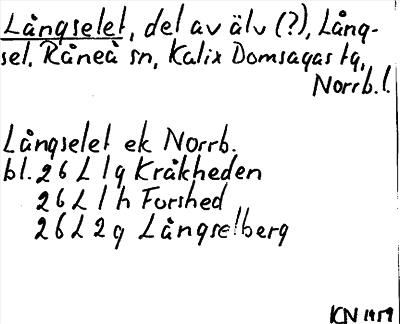 Långselet, del av älv (?), Lång-
sel, Råneå sn, Kalix Domsagas tg,
Norrb.l.
Långselet ek Norrb.
bl. 26 L 1g Kråkheden
26 L 1 h Forshed
26 L 2g Långselberg
KN 1959